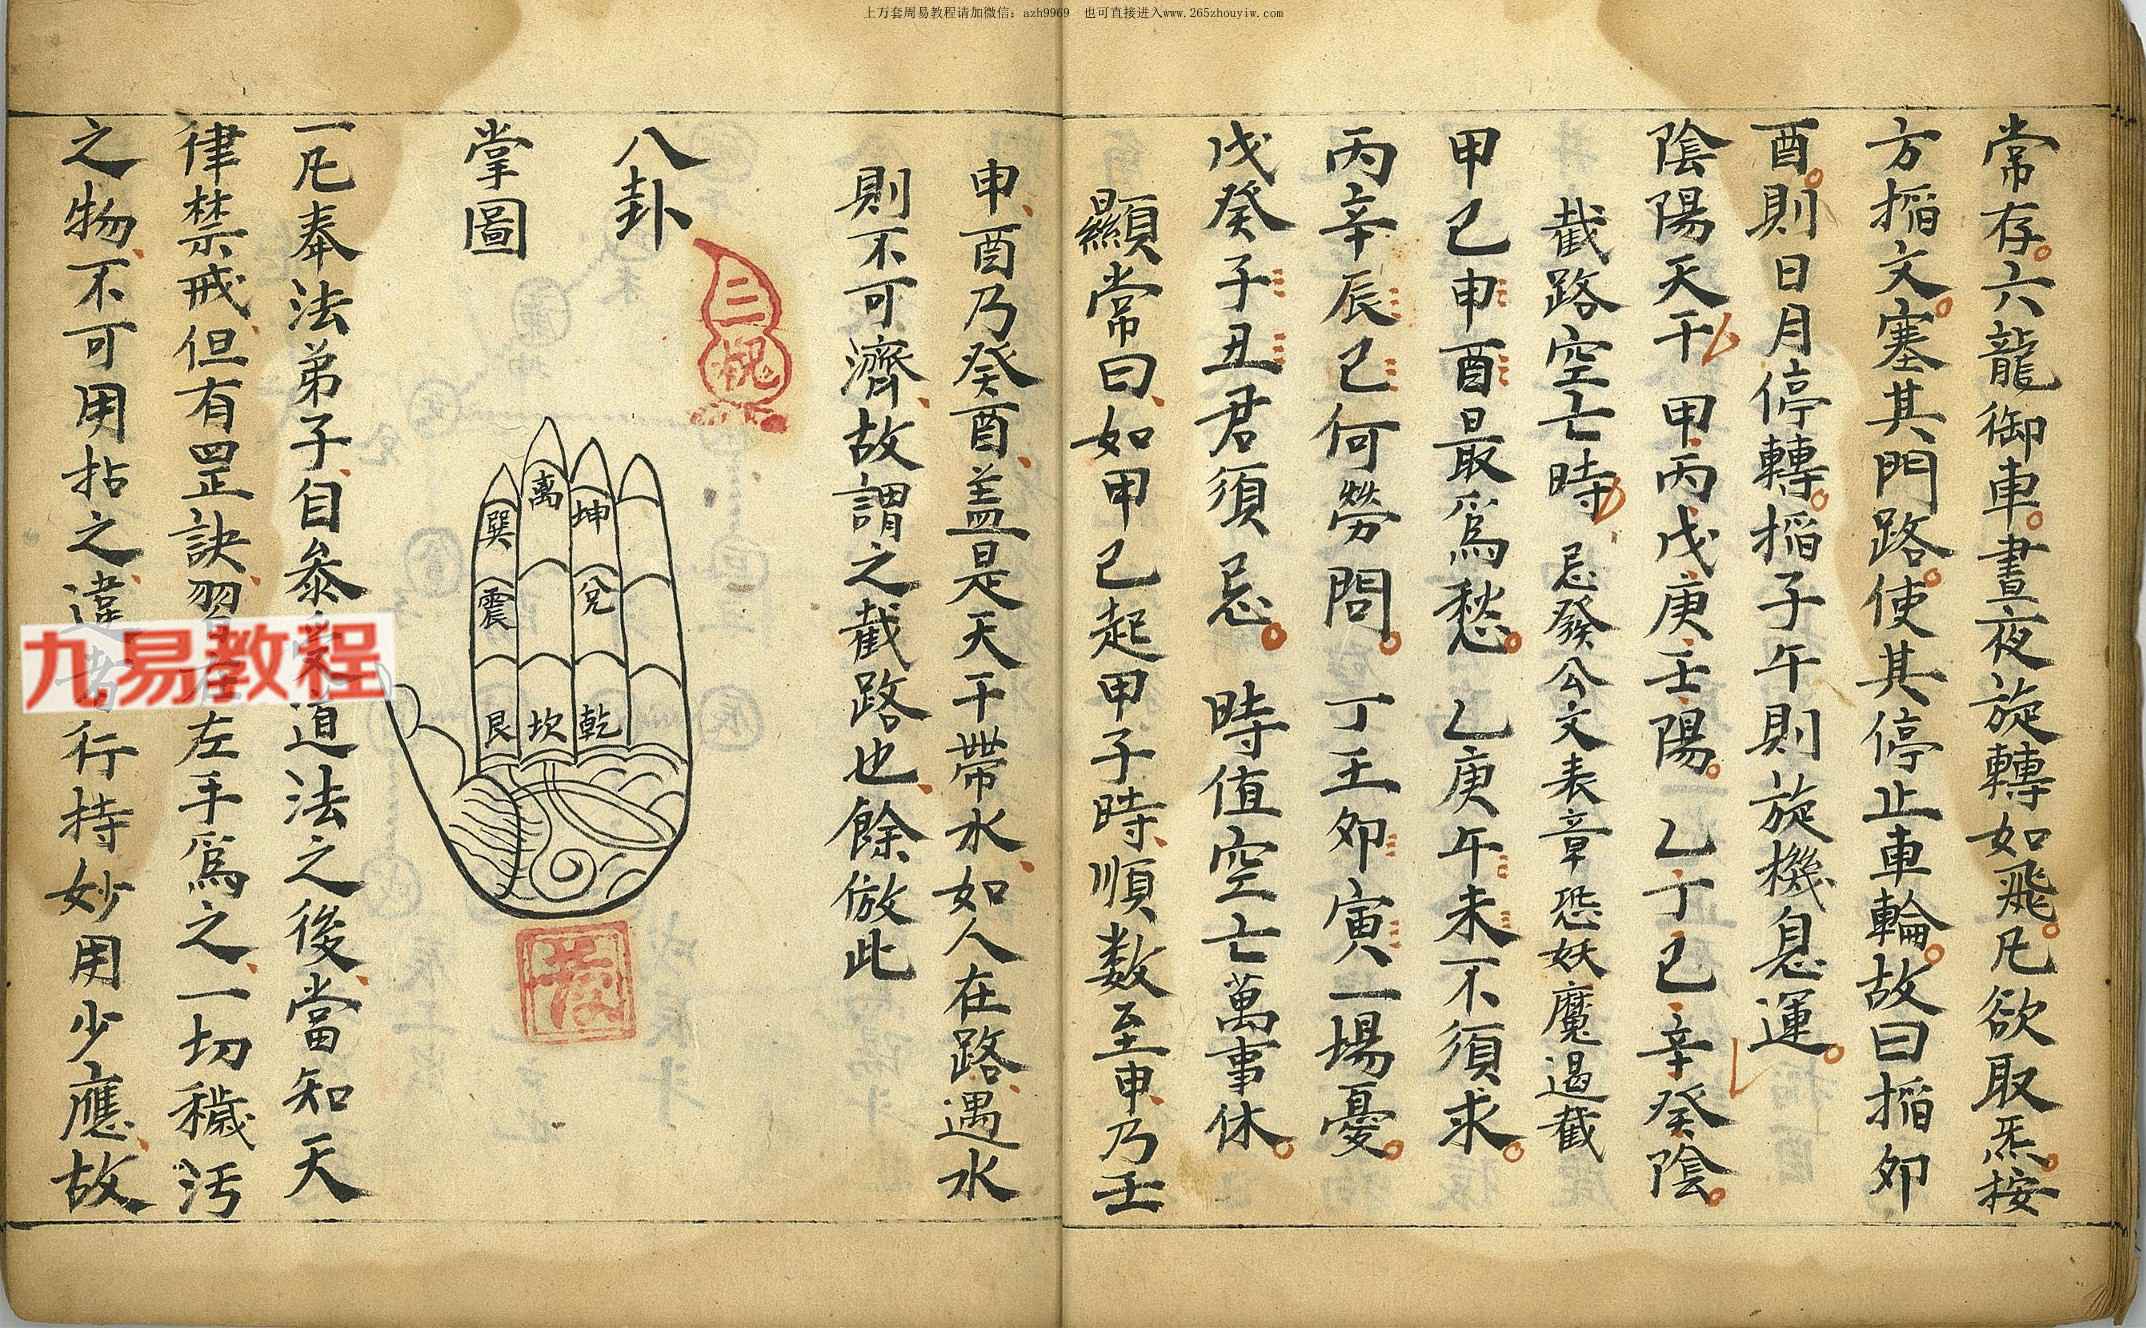 上万套周易教程请加微信：azh9969　也可直接进入www.265zhouyiw.com
常存。六龍御車。晝夜旋轉如飛。凡欲取炁。按
方搯文。塞其門路。使其停止車輪。故曰搯夘
酉。則日月停轉。搯子午則旋機息運。
陰陽天干　甲丙戊庚壬陽。乙丁己辛癸陰。
截路空亡時　忌發公文表章恐妖魔遏截
甲己申酉最爲愁。乙庚午未不須求。
丙辛辰巳何勞問。丁壬夘寅一場憂。
戊癸子丑君須忌。時值空亡萬事休。
顯常曰、如甲己起甲子時、順数至申、乃壬
申、酉乃癸酉、盖是天干帶水、如人在路、遇水
則不可濟、故謂之截路也、餘倣此
八卦
掌圖
離
坤
巽
兌
震
艮
坎
乾
一凡奉法弟子、自叅道法之後、當知天
律禁戒、但有罡訣、習左手爲之、一切穢汚
之物、不可用拈之、違者行持妙用少應、故
九易教程